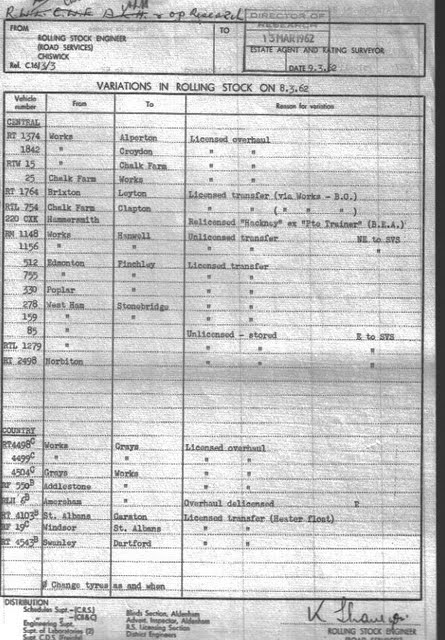 R.N.K. C.N.E. A.K.H. + Op Research
DIRECTOR OF
RESEARCH
13 MAR 1962
FROM
ROLLING STOCK ENGINEER
(ROAD SERVICES)
CHISWICK
Ref. C.16/3/3
TO
ESTATE AGENT AND RATING SURVEYOR
DATE 9.3.62
VARIATIONS IN ROLLING STOCK ON 8.3.62
Vehicle number From To Reason for variation
CENTRAL
RT 1374 Works Alperton Licensed overhaul
1842 " Croydon " "
RTW 15 " Chalk Farm " "
25 Chalk Farm Works " "
RT 1764 Brixton Leyton Licensed transfer (via Works - B.O.)
RTL 754 Chalk Farm Clapton " " ( " " " )
220 CXK Hammersmith Relicensed "Hackney" ex "Pte Trainer" (B.E.A.)
RM 1148 Works Hanwell Unlicensed transfer NE to SVS
1156 " " " " "
512 Edmonton Finchley Licensed transfer
755 " " " "
330 Poplar " " "
278 West Ham Stonebridge " "
159 " " " "
85 " Unlicensed - stored E to SVS
RTL 1279 " " " "
RT 2498 Norbiton " " "
COUNTRY
RT4498C Works Grays Licensed overhaul
4499C " " " "
4504C Grays Works " "
RF 550B Addlestone " " "
RLH 6B Amersham " Overhaul delicensed F
RT 4103B St. Albans Garston Licensed transfer (Heater float)
RF 19C Windsor St. Albans " "
RT 4543B Swanley Dartford " "
Ø Change tyres as and when
DISTRIBUTION
Schedules Supt.-(C.R.S.)
" -(CB&C)
Engineering Supt.
Supt. of Laboratories (2)
Supt. C.D.S. (Reigate)
Blinds Section, Aldenham
Advert. Inspector, Aldenham
R.S. Licensing Section
District Engineers
ROLLING STOCK ENGINEER